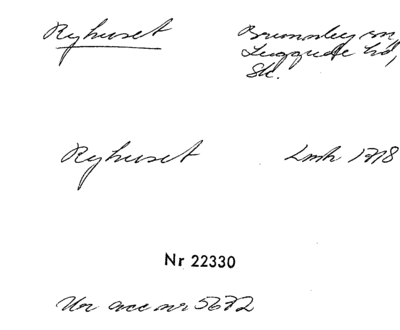 Ryhuset Brunnsby sn,
Luggude hd,
Sk.
Ryhuset Lmh 1718
Nr 22330
Ur acc nr 5672